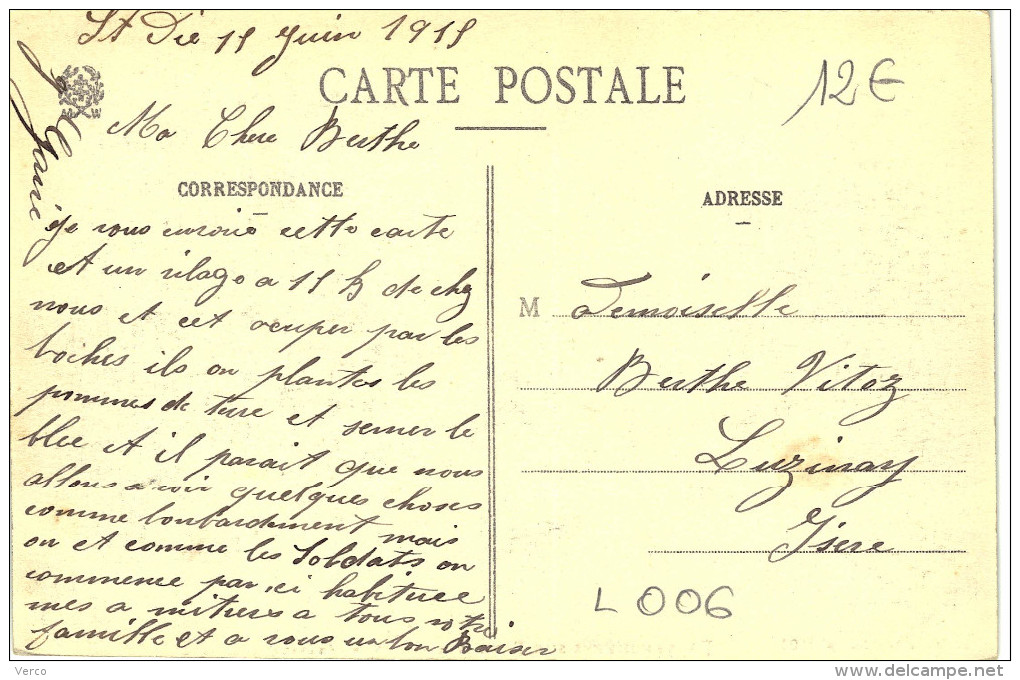 St Dié 15 juin 1915
CARTE POSTALE
12€
Ma Chere Berthe
CORRESPONDANCE
ADRESSE
je vous envoié cette carte
et un vilage a 15 k de chez
nous et cet ocuper par les
boches ils on plantes les
pommes de terre et semer le
blee et il parait que nous
allons avoir quelques choses
comme bonbardement mais
on et comme les Soldats on
commence par ici habituee
mes a mitiers a tous votre
famille et a vous un bon Baiser
M Demoiselle
Berthe Vitoz
Luzinay
Isere
L 006
Verco
www.delcampe.net